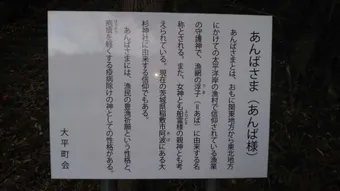 あんばさま（あんば様）
あんばさまとは、おもに関東地方から東北地方
にかけての太平洋岸の漁村で信仰されている漁業
の守護神で、漁網の浮子（＝あば）に由来する名
称とされる。また、女神とも船霊様の親神とも考
えられている。現在の茨城県稲敷市阿波にある大
杉神社に由来する信仰でもある。
あんばさまには、漁民の豊漁祈願という性格と、
疱瘡を軽くする疫病除けの神としての性格がある。
大平町会